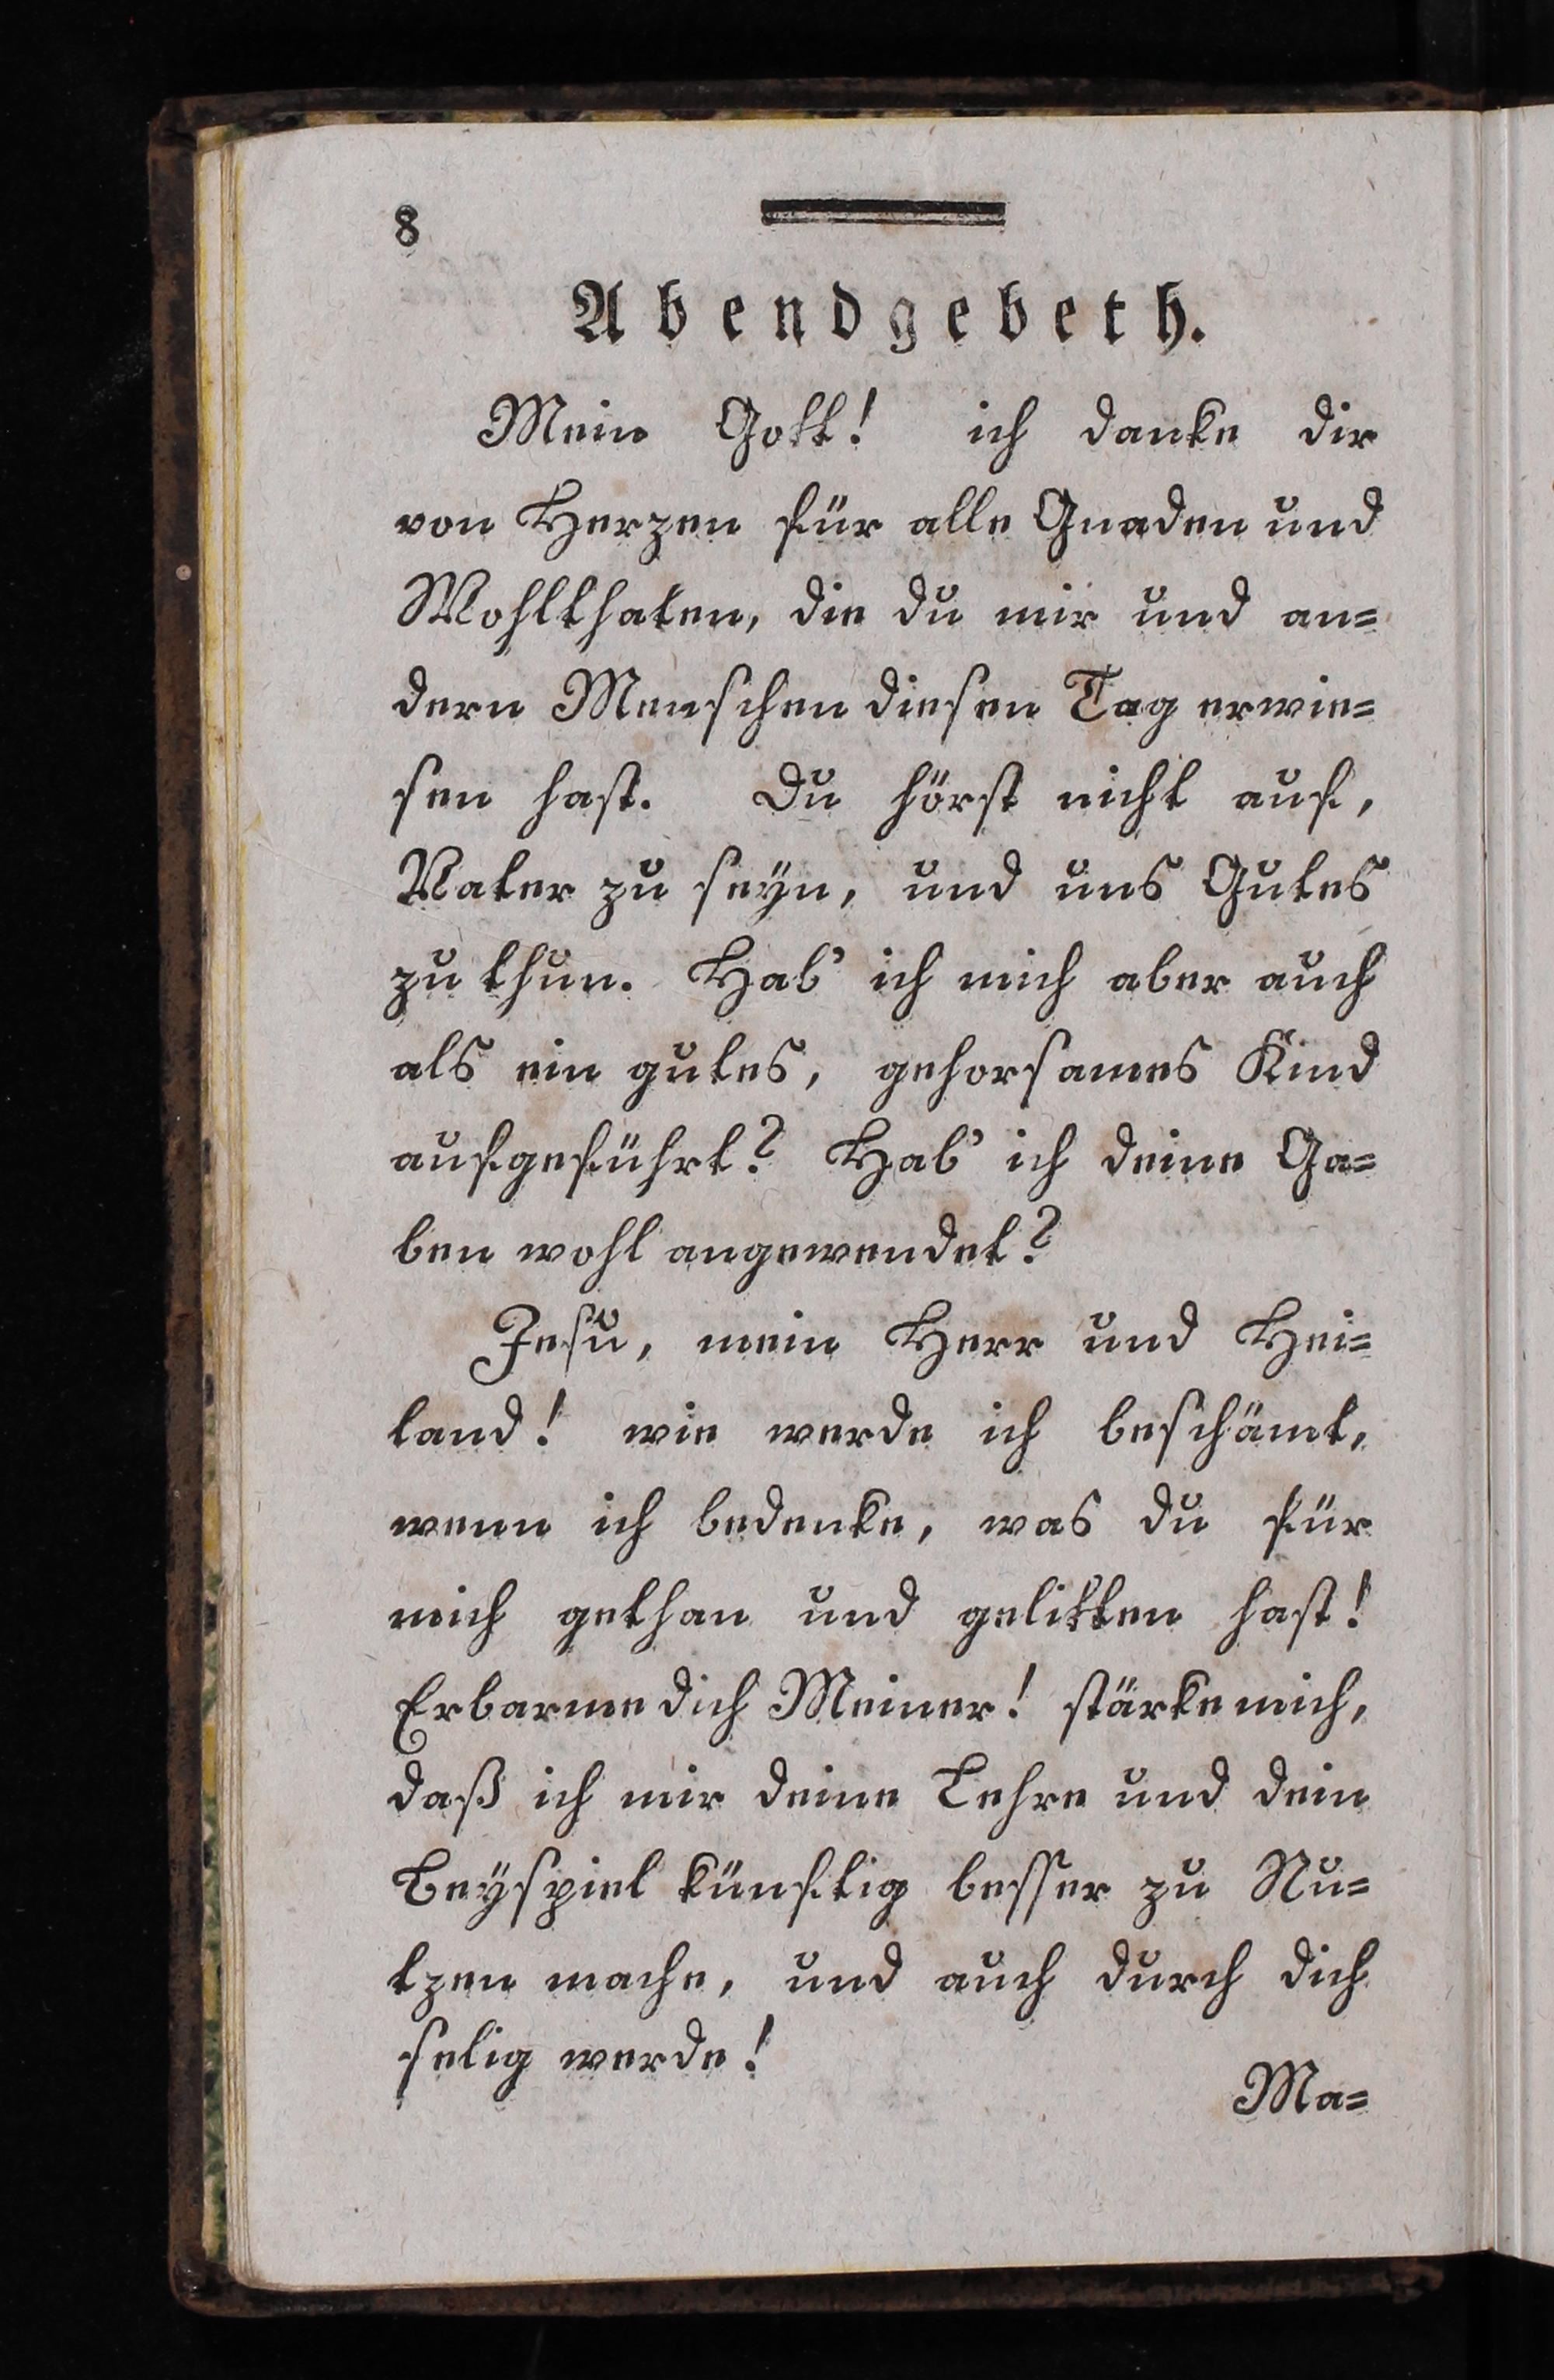 8
Abendgebeth.
Mein Gott! ich danke dir
von Herzen für alle Gnaden und
Wohlthaten, die du mir und an=
dern Menschen diesen Tag erwie=
sen hast. Du hörst nicht auf,
Vater zu seyn, und uns Gutes
zu thun. Hab' ich mich aber auch
als ein gutes, gehorsames Kind
aufgeführt? Hab' ich deine Ga=
ben wohl angewendet?
Jesu, mein Herr und Hei=
land! wie werde ich beschämt,
wenn ich bedenke, was du für
mich gethan und gelitten hast!
Erbarme dich Meiner! stärke mich,
daß ich mir deine Lehre und dein
Beyspiel künftig besser zu Nu=
tzen mache, und auch durch dich
selig werde!
Ma=